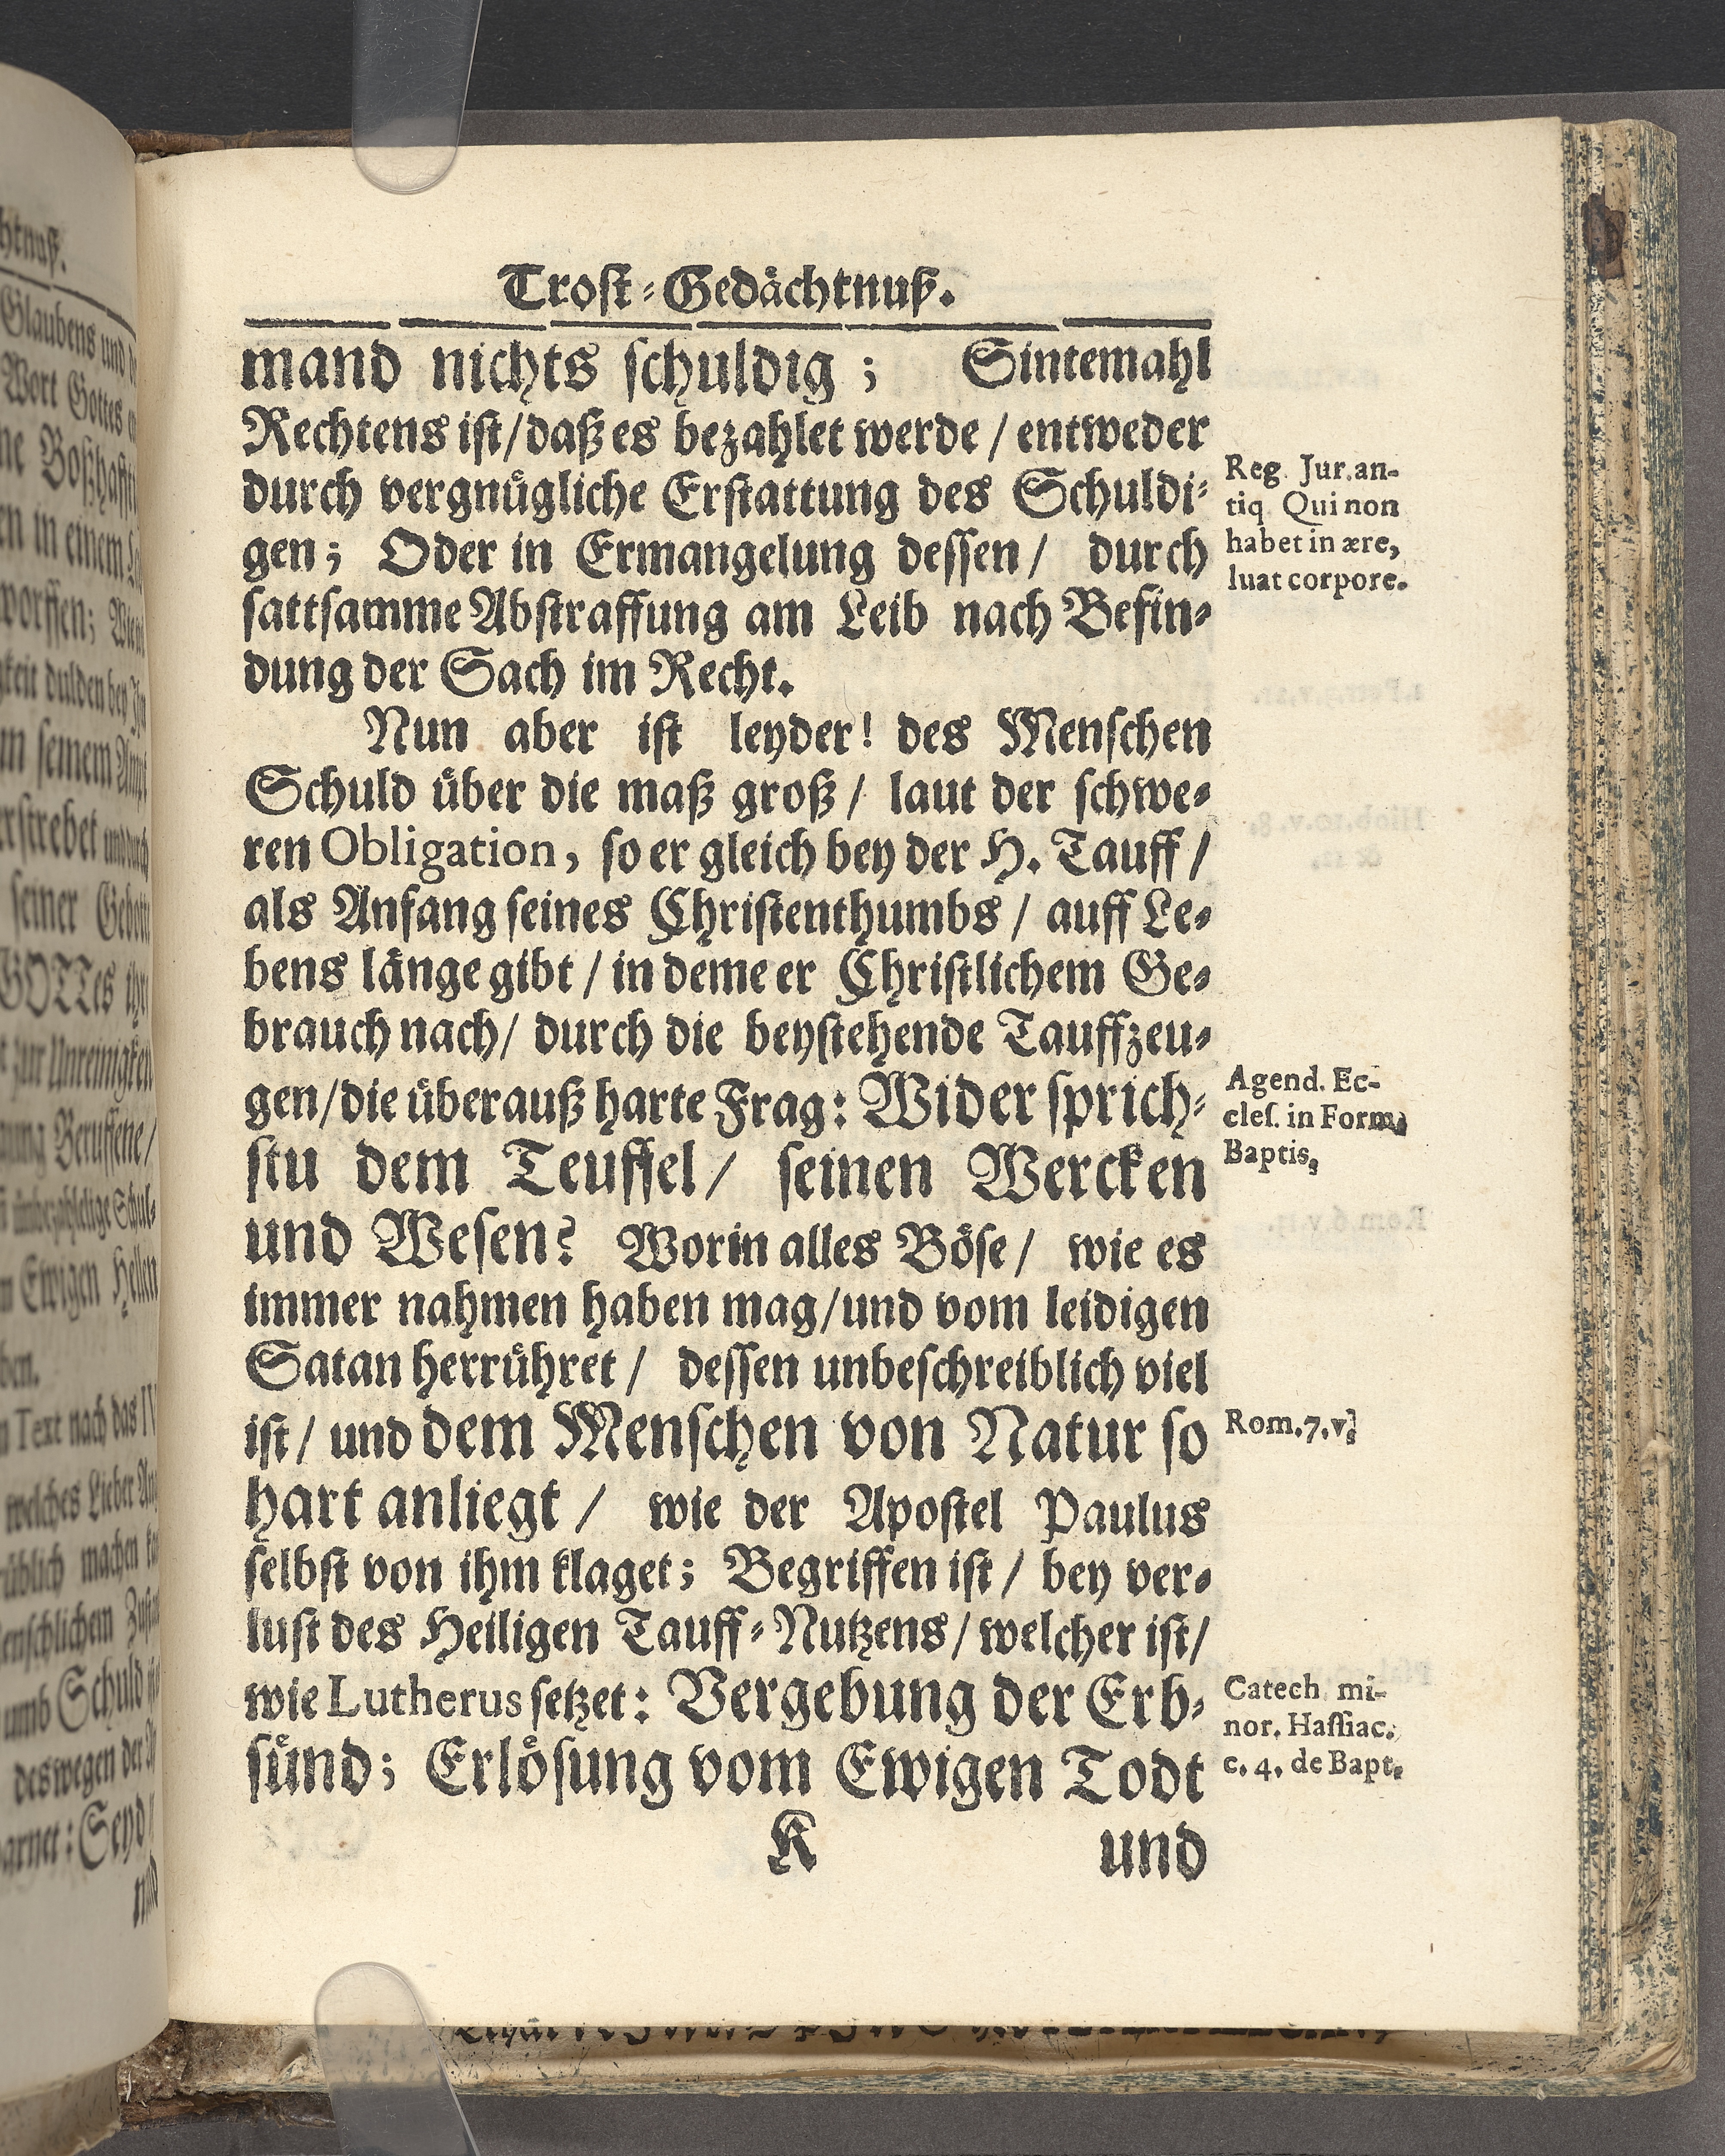 Trost-Gedächtnuß.
mand nichts schuldig; Sintemahl
Rechtens ist/daß es bezahlet werde/entweder
durch vergnügliche Erstattung des Schuldi-
gen; Oder in Ermangelung dessen/ durch
sattsamme Abstraffung am Leib nach Befin-
dung der Sach im Recht.
Nun aber ist leyder! des Menschen
Schuld über die maß groß/ laut der schwe-
ren Obligation, so er gleich bey der H. Tauff/
als Anfang seines Christenthumbs/ auff Le-
bens länge gibt/in deme er Christlichem Ge-
brauch nach/ durch die beystehende Tauffzeu-
gen/die überauß harte Frag: Widersprich-
stu dem Teuffel/ seinen Wercken
und Wesen? Worin alles Böse/ wie es
immer nahmen haben mag/und vom leidigen
Satan herrühret/ dessen unbeschreiblich viel
ist/ und dem Menschen von Natur so
hart anliegt/ wie der Apostel Paulus
selbst von ihm klaget; Begriffen ist/ bey ver-
lust des Heiligen Tauff-Nutzens/welcher ist/
wie Lutherus setzet: Vergebung der Erb-
sünd; Erlösung vom Ewigen Todt
K und
Reg. Jur. an-
tiq Qui non
habet in ære,
luat corpore.
Agend. Ec-
cles. in Form.
Baptis.
Rom. 7. v.
Catech mi-
nor. Hassiac.
c. 4. de Bapt.